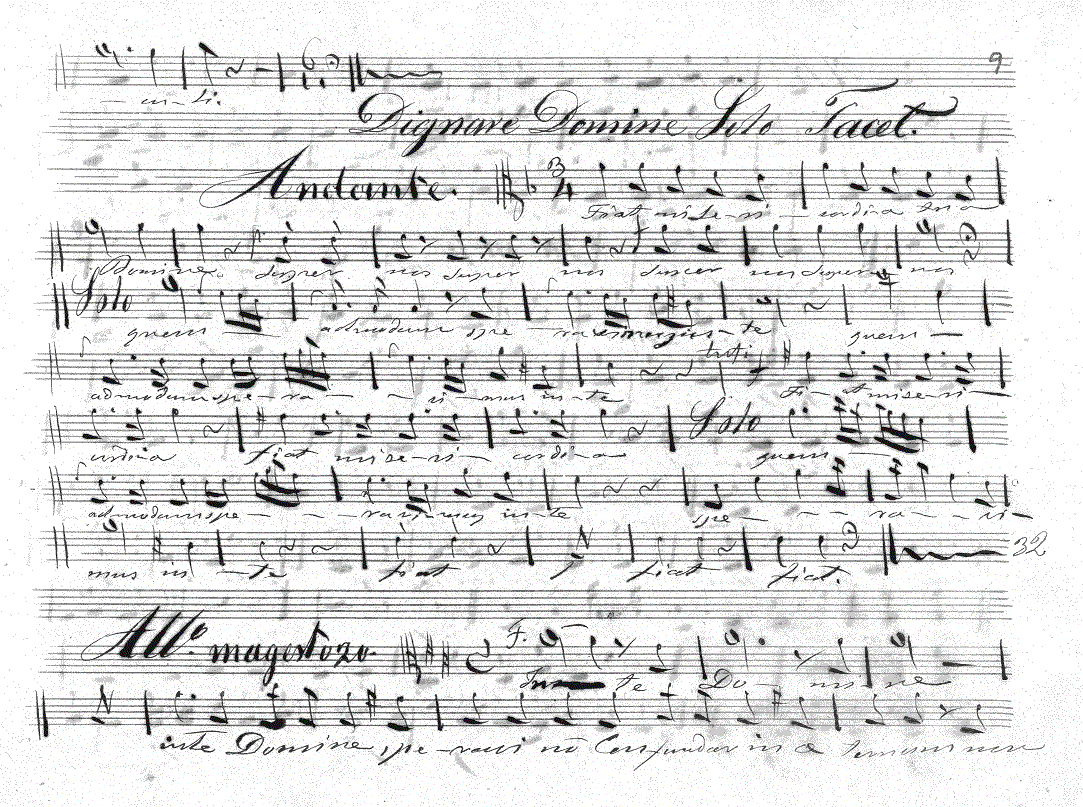 9
- un-ti.
Dignare Domine Solo Tacet.
Andante. 3/4
Fiat mise-ri-cordia tua
Domine super nos super nos super nos super nos
Solo
quem - admodum spe-ravimus in-te quem -
tutti
admodum spe-ra - - vi-mus in-te Fi-at mise-ri -
Solo
cordia fiat mise-ri-cordia quem -
admodum spe - - - ravimus in-te spe - - - ra - - vi -
mus in - te fiat fiat fiat. 32
All.º magestozo. C
F.
In te Do - mi - ne
in te Domine spe-ravi nõ Confundar in æ ternum non